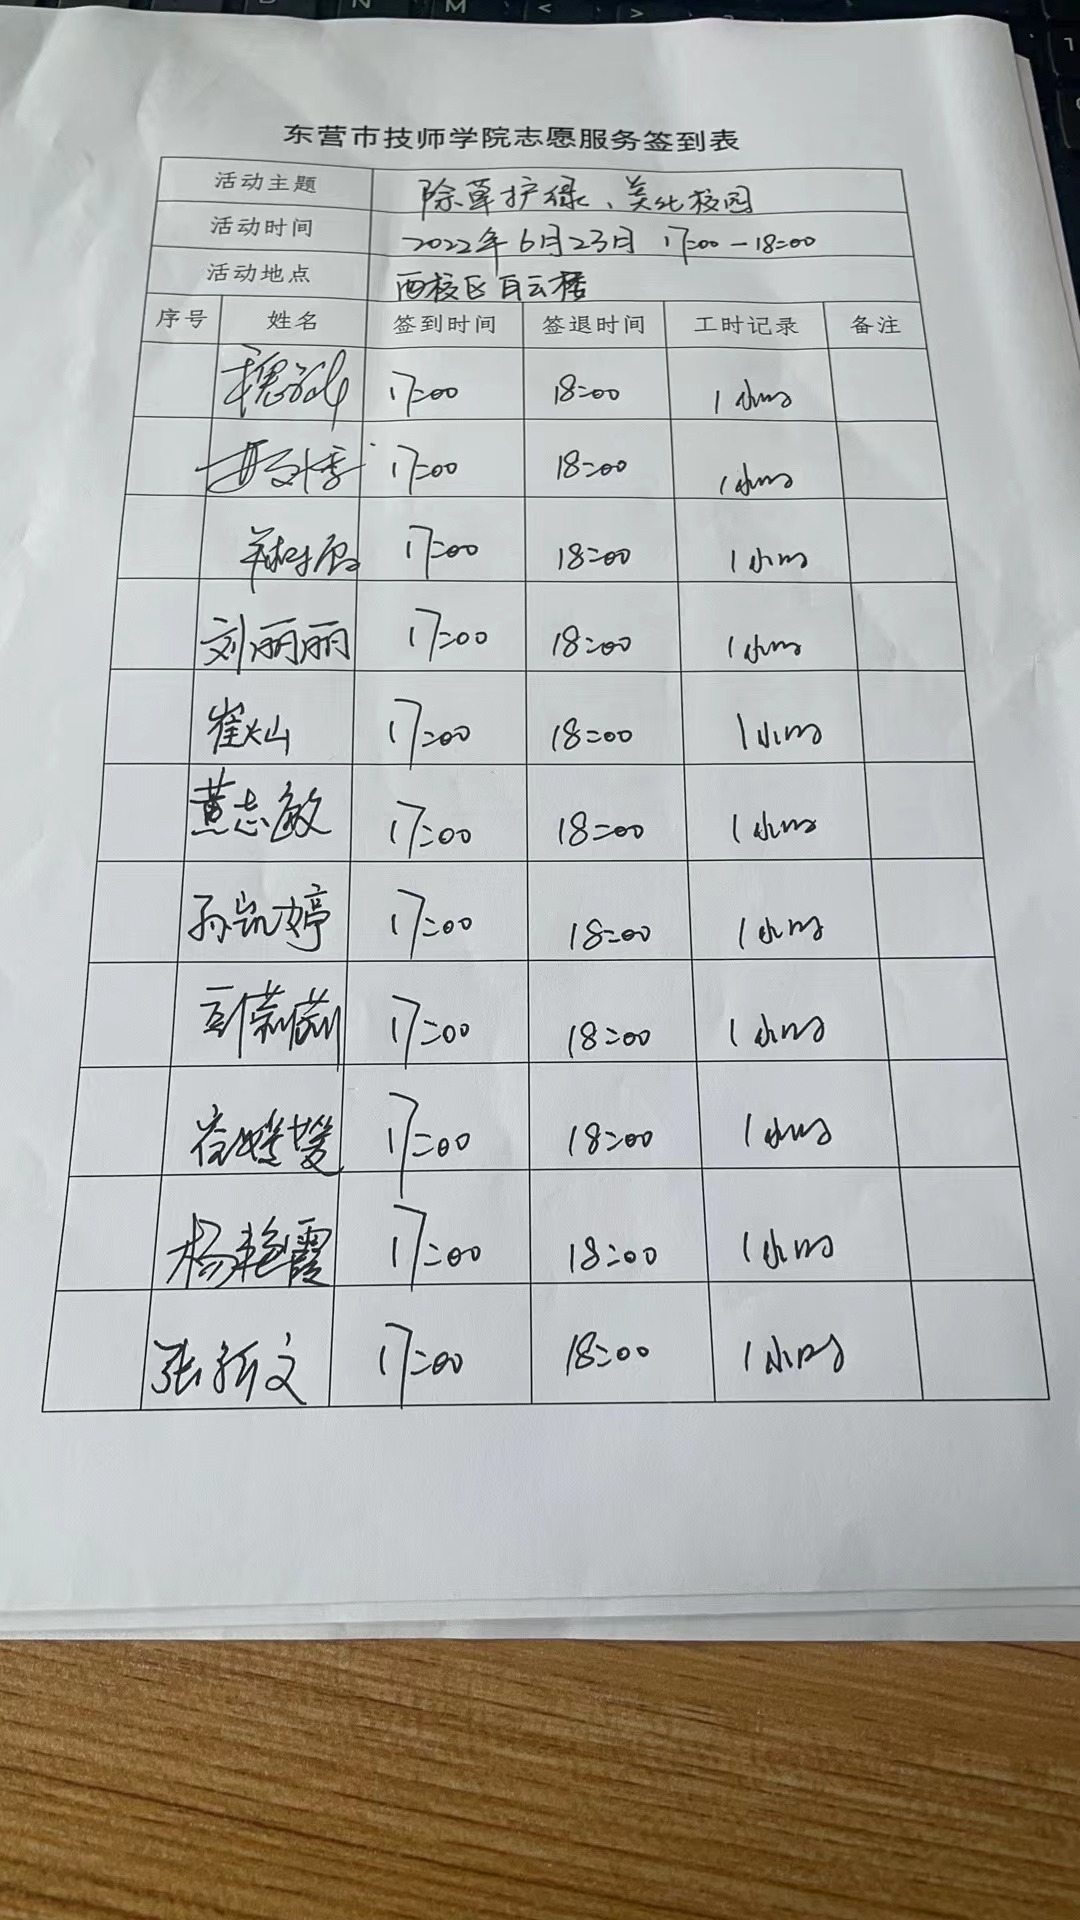 东营市技师学院志愿服务签到表
活动主题 除草护绿、美化校园
活动时间 2022年6月23日 17:00-18:00
活动地点 西校区白云楼
序号 姓名 签到时间 签退时间 工时记录 备注
17:00 18:00 1小时
17:00 18:00 1小时
17:00 18:00 1小时
刘丽丽 17:00 18:00 1小时
崔灿 17:00 18:00 1小时
黄志敏 17:00 18:00 1小时
孙凯婷 17:00 18:00 1小时
17:00 18:00 1小时
17:00 18:00 1小时
杨艳霞 17:00 18:00 1小时
17:00 18:00 1小时